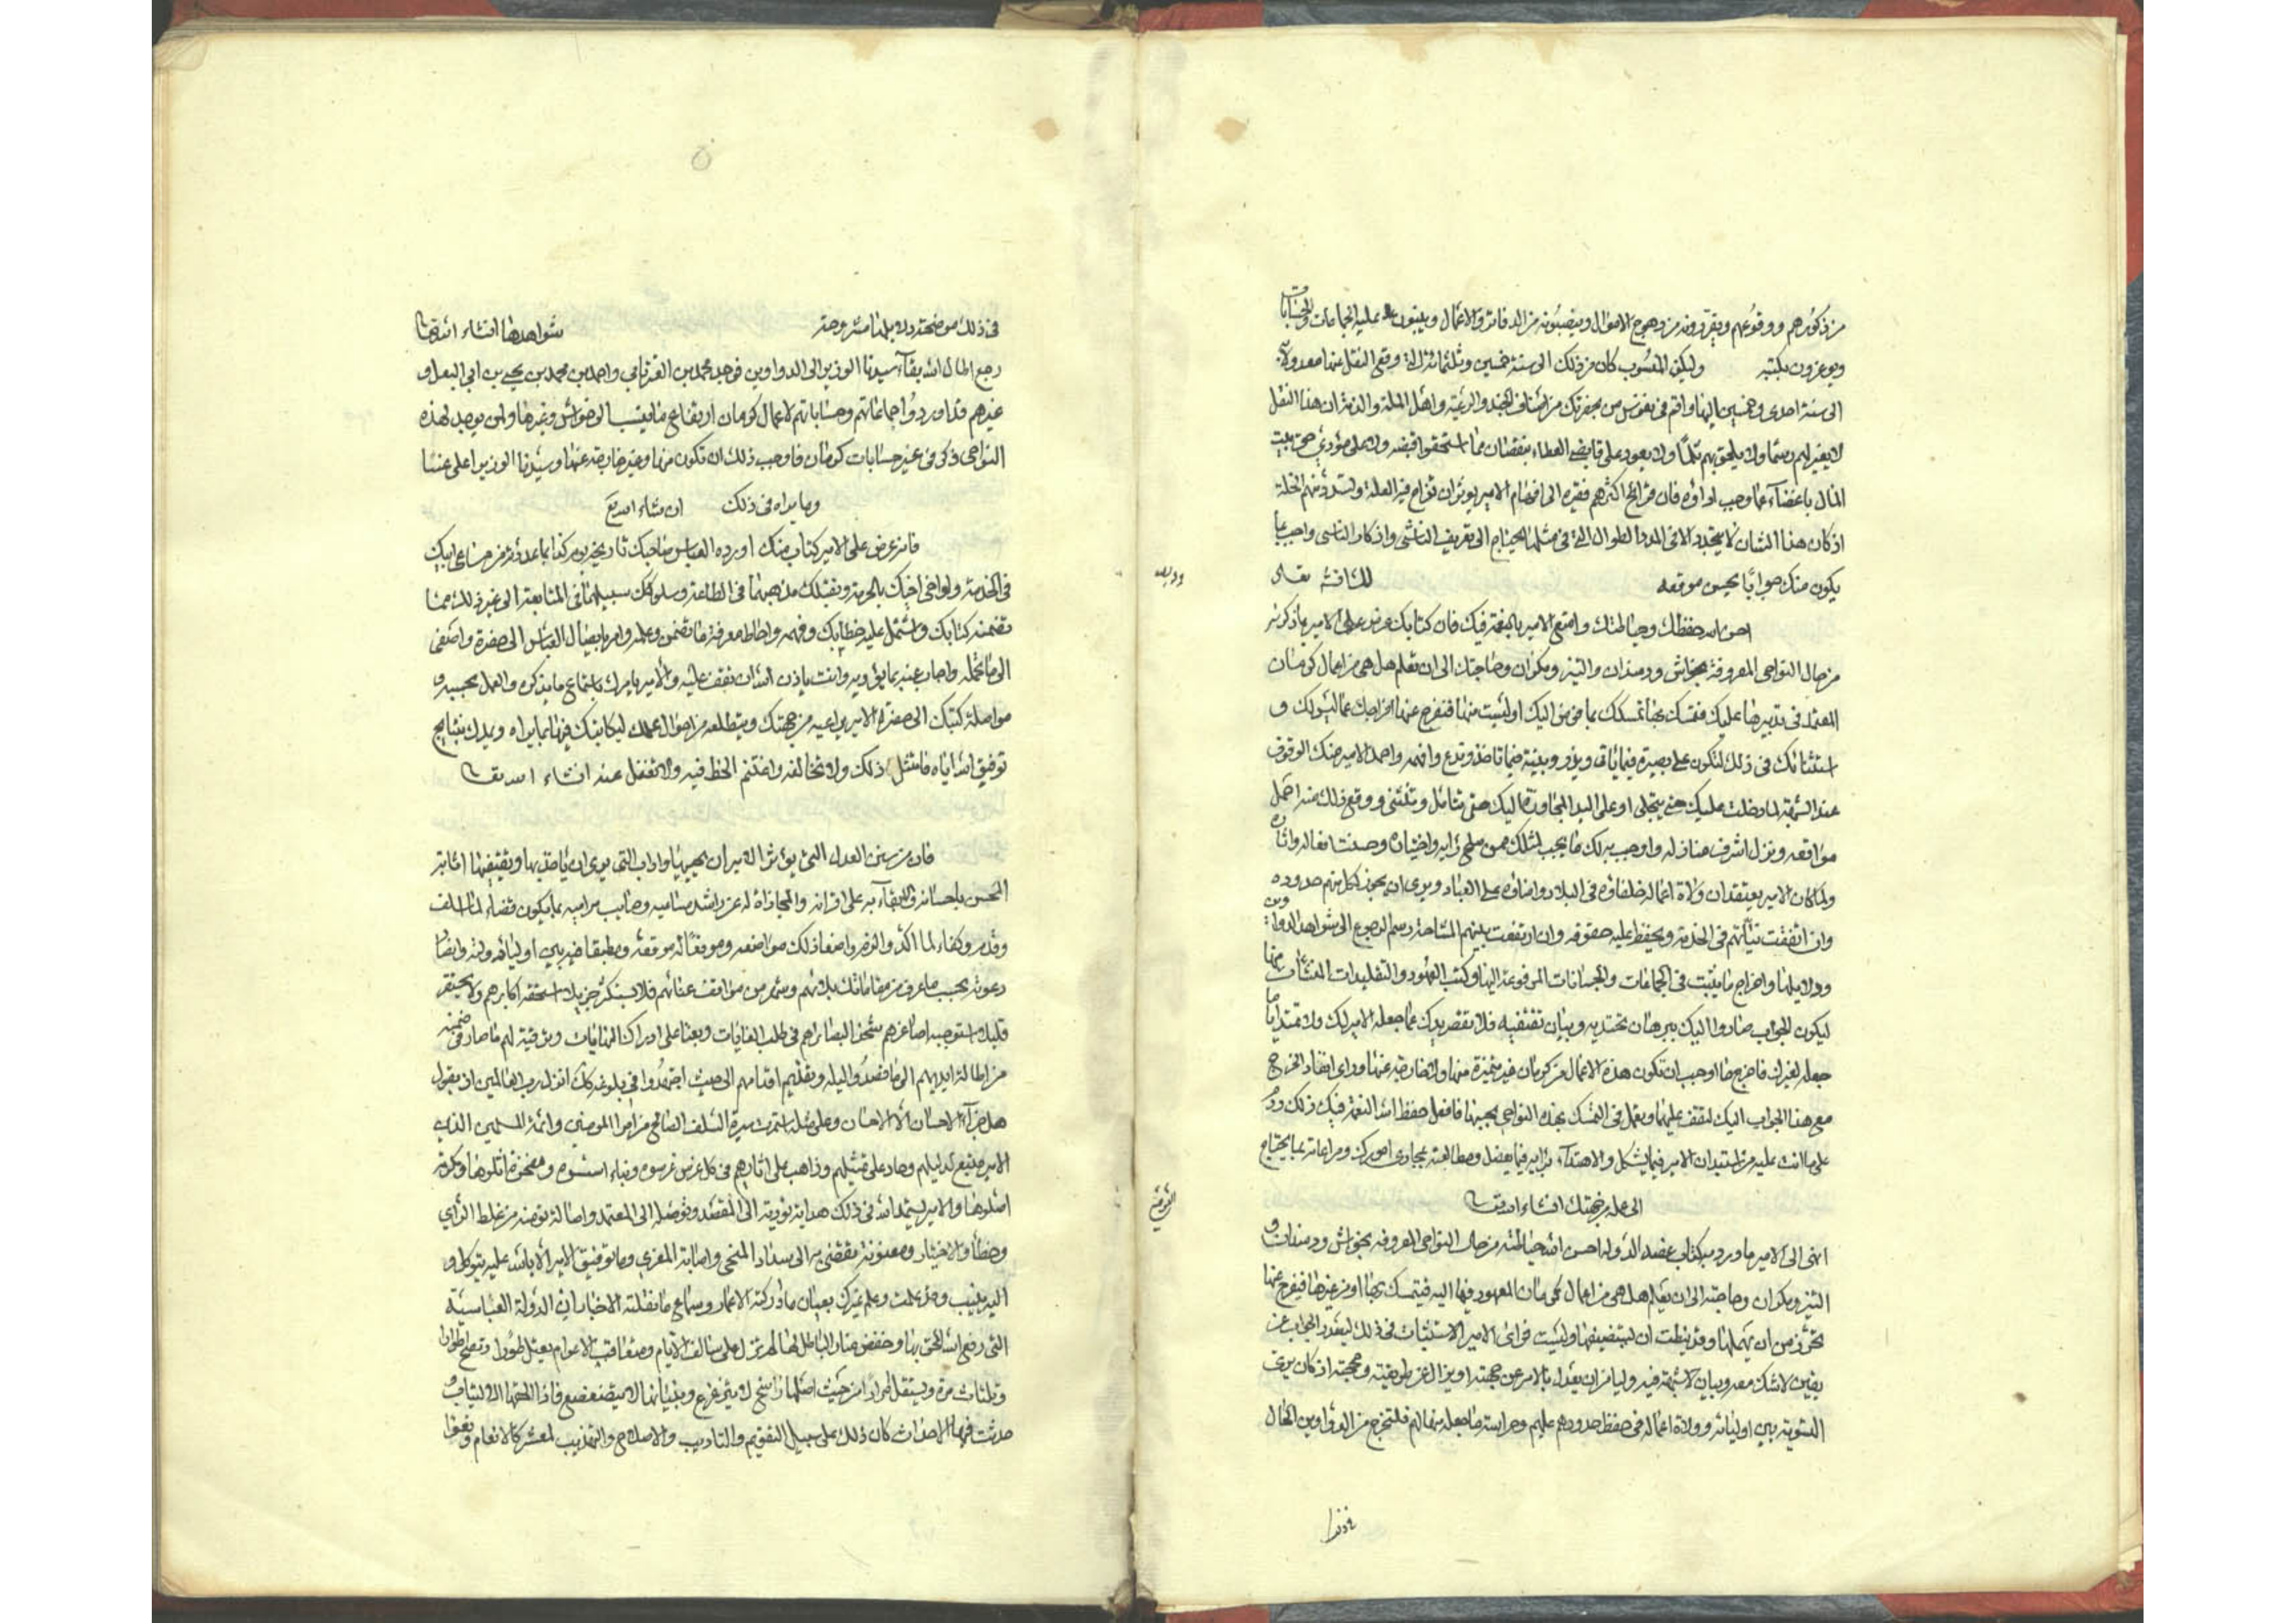 من ذكورهم ووقوعهم ويقررونه من وجوه الاموال وينصبونه من الدفاتر والاعمال ويبنون عليه الجماعات والحسابات
ويوعزون بكتبه وليكن المنسوب كان من ذلك الى سنة خمسين وثلثمائة وقع النقل عنها معدولا
الى سنة احدى وخمسين اليها واقم في نفوس من بحضرتك من اصناف الجند والرعية واهل الملة والذمة ان هذا النقل
لا يغير لهم رسما ولا يلحق بهم ثلما ولا يعود على قابض العطاء بنقصان مما استحقوا قبضه ولا على مؤدي حق بيت
المال باغضاء عما وجب اداؤه فان قرائح اكثرهم فقيرة الى افهام الامير يوثر ان تزاح فيه العلة وتسد منهم الخلة
اذ كان هذا الشان لا يتجدد الا في المدد الطوال التي في مثلها يحتاج الى تعريف الناشي واذكار الناسي واجب بما
يكون منك جوابا يحسن موقعه لك ان شاء الله تعالى
احسن الله حفظك وحياطتك وامتع الامير بالنعمة فيك فان كتابك عرض على الامير بما ذكرته
من حال النواحي المعروفة بخواش ودمندان والتيز ومكران وحاجتك الى ان تعلم هل هي من اعمال كرمان
المعتمد في تدبيرها عليك فتمسك بها تمسكك بما فوض اليك او ليست منها فتفرج عنها افراجك عما ليس لك و
استثنائك في ذلك لتكون على بصيرة فيما ياتي ويذر وبينة فيما تاخذ وتدع وافهمه واحمد الامير منك الوقوف
عند الشبهة لما دخلت عليك حتى ينجلي او على اليد المجاورة اليك حتى تتامل وتستثني ووقع ذلك منه اجمل
مواقعه ونزل اشرف منازله واوجب به لك ما يجب لمثلك ممن صلح رايه واختياره وحسنت افعاله واثاره
ولما كان الامير يعتقد ان ولاة اعماله خلفاؤه في البلاد وامناؤه على العباد ويرى ان يحوز كل منهم حدوده
وان اتفقت نياتهم في الخدمة ويحفظ عليه حقوقه وان ارتفعت بينهم المشاحة رسم الرجوع الى شواهد الدواوين
ودلايلها واخراج ما يثبت في الجماعات والحسابات المرفوعة اليها وكتب العهود والتقليدات المنشاة منها
ليكون الجواب صادرا اليك ببرهان تحتذيه وبيان تقتفيه فلا تقصر يدك عما جعله الامير لك ولا تمتد الى ما
جعله لغيرك فاخرج ما اوجب ان تكون هذه الاعمال من كرمان غير متميزة منها ولا خارجة عنها وراى انفاذ الخرج
مع هذا الجواب اليك لتقف عليها وتعمل في التمسك بهذه النواحي بحسبها فافعل حفظ الله النعمة فيك ذلك ودم
على ما انت عليه من استيذان الامير فيما يشكل والاهتداء برايه فيما يعضل ومطالعته بمجاري امورك ومراعاته بما يحتاج
الى عمله من جهتك ان شاء الله تعالى
انهى الى الامير ما ورد به كتاب عضد الدولة احسن الله حياطته من حال النواحي المعروفة بخواش ودمندان و
التيز ومكران وحاجته الى ان يعلم هل هي من اعمال كرمان المعهود فيها اليه فيتمسك بها او من غيرها فيفرج عنها
تحرز من ان يهملها وقد نيطت ان يستضيفها وليست فراى الامير الاستثبات في ذلك ليصدر الجواب عن
يقين لا شك معه وبيان لا شبهة فيه وليامن ان يعدل بالامر عن جهته او يزال عن طريقته ومحجته اذ كان يرى
التسوية بين اوليائه وولاة اعماله في حفظ حدودهم عليهم وحراسة ما جعله منها لهم فلتخرج من الدواوين الحال
في ذلك موضحة ودلايلها مشروحة شواهدها ان شاء الله تعالى
رجع اطال الله بقاء سيدنا الوزير الى الدواوين فوجد محمد بن القرناني واحمد بن محمد بن يحيى بن ابي البغل و
غيرهم قد اوردوا جماعاتهم وحساباتهم لاعمال كرمان ارتفاع ما ينسب الى خواش وغيرها ولمن يوجد لهذه
النواحي ذكر في غير حسابات كرمان فاوجب ذلك ان تكون منها وغير خارجة عنها وسيدنا الوزير اعلى عينا
وما يراه في ذلك ان شاء الله تعالى
فانه عرض على الامير كتاب منك اورده العباس صاحبك تاريخه يوم كذا بما عددته من مساعي ابيك
في الخدمة واواخي اخيك بالحرمة وتقيلك مذهبهما في الطاعة وسلوكك سبيلهما في المتابعة الى غير ذلك مما
تضمنه كتابك واشتمل عليه خطابك وفهمه واحاط معرفة ما تضمن وعلمه وامر بايصال العباس الى حضرته واصغى
الى ما تحمله واجاب عنه بما يؤديه وانت باذن الله ان تقف عليه والامير يامرك باستماع ما يذكره والعمل بحسبه و
مواصلة كتبك الى حضرة الامير بما عنه من جهتك ويتطلعه من احوال عملك ليكاتبك فيها بما يراه ويمدك بنتايج
توفيق الله اياه فامتثل ذلك ولا تخالفه واغتنم الحظ فيه ولا تغفل عنه ان شاء الله تعالى
فان من سنن العدل التي يؤثر الامير ان يحييها واداب الله التي يرى ان ياخذ بها ويقتفيها اثابة
المحسن باحسانه والابقاء به على اقرانه والمجازاة له عن راشد مساعيه وصايب مراميه بما يكون قضاء لما اسلف
وقدم وكفاء لما اكد والزم واضعا ذلك مواضعه وموقعا له موقعه ومطبقا فيه بين اوليائه
دعوته بحسب ما عرف من مقامات بلائهم وشهر من مواقف عنائهم فلا يستكثر جزيلا استحقه اكابرهم ولا يحتقر
قليلا استوجبه اصاغرهم شحذا لبصائرهم في طلب الغايات وبعثا على ادراك النهايات وتوفية لهم ما صار في ضمنه
من اطالة ايديهم الى ما قصدوا اليه وتقديم اقدامهم الى حيث اجتهدوا في بلوغه كما انزل رب العالمين اذ يقول
هل جزاء الاحسان الا الاحسان وعلى مثله استمرت سيرة السلف الصالح من امراء المومنين وائمة المسلمين الذين
الامير متبع لدليلهم وحاد على تمثيلهم وذاهب على اثارهم في كل غرس غرسوه وبناء اسسوه ومفخرة اثلوها ومكرمة
اصلوها والامير يستمد الله في ذلك هداية تؤديه الى المقصد وتوصله الى المعتمد واصالة تؤمنه من غلط الراي
وخطأ الاختيار ومعونة تفضي به الى سداد المنحى واصابة المغزى وما توفيق الامير الا بالله عليه يتوكل و
اليه ينيب وقد علمت وعلم غيرك بعيان ما ادركته الاعمار وسماع ما نقلته الاخبار ان الدولة العباسية
التي رفع الله الحق بها وخفض منار الباطل لها لم تزل على سالف الايام ومتعاقب الاعوام يعتل طورا وتصح اطوارا
وتلتاث مرة ويستقل مرارا من حيث اصلها راسخ لا يتزعزع وبنيانها لا يتضعضع فاذا لحقها الالتياث و
حدثت فيها الاحداث كان ذلك على سبيل التقويم والتاديب والاصلاح والتهذيب لمعشر كالانعام وبغوا